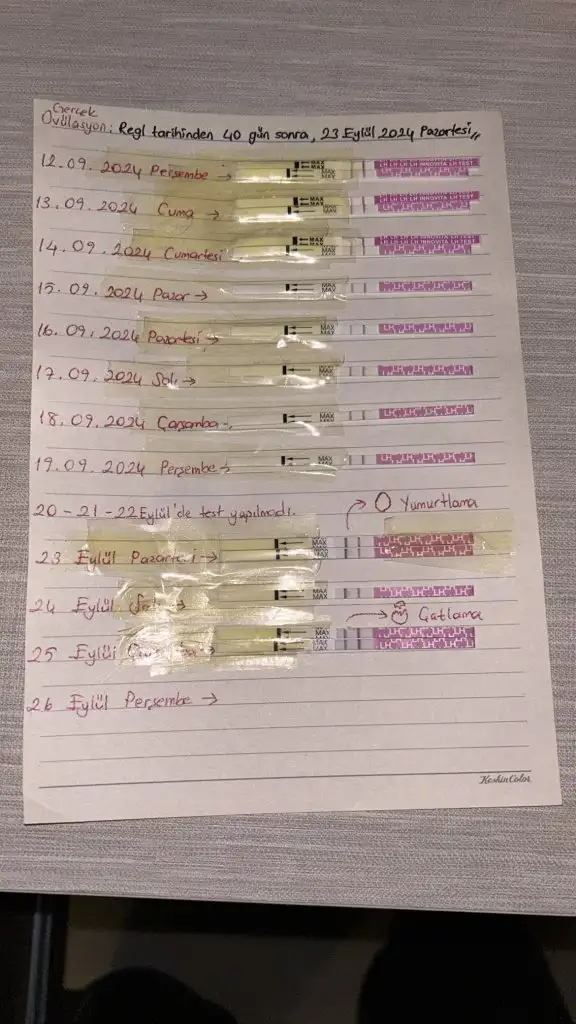 Gerçek
Ovülasyon: Regl tarihinden 40 gün sonra, 23 Eylül 2024 Pazartesi,,
12.09.2024 Perşembe → MAX MAX LH LH LH LH INNOVITA LH TEST
13.09.2024 Cuma → MAX MAX LH LH LH LH INNOVITA LH TEST
14.09.2024 Cumartesi MAX MAX LH LH LH LH INNOVITA LH TEST
15.09.2024 Pazar → MAX LH LH LH LH
16.09.2024 Pazartesi → MAX LH LH LH LH
17.09.2024 Salı → MAX LH LH LH LH
18.09.2024 Çarşamba → MAX LH LH LH LH
19.09.2024 Perşembe → MAX LH LH LH LH
20-21-22 Eylül'de test yapılmadı.
Yumurtlama
23 Eylül Pazartesi → MAX MAX LH LH LH LH
24 Eylül Salı → MAX MAX LH LH LH LH
Çatlama
25 Eylül → MAX MAX LH LH LH LH
26 Eylül Perşembe →
KeskinColor